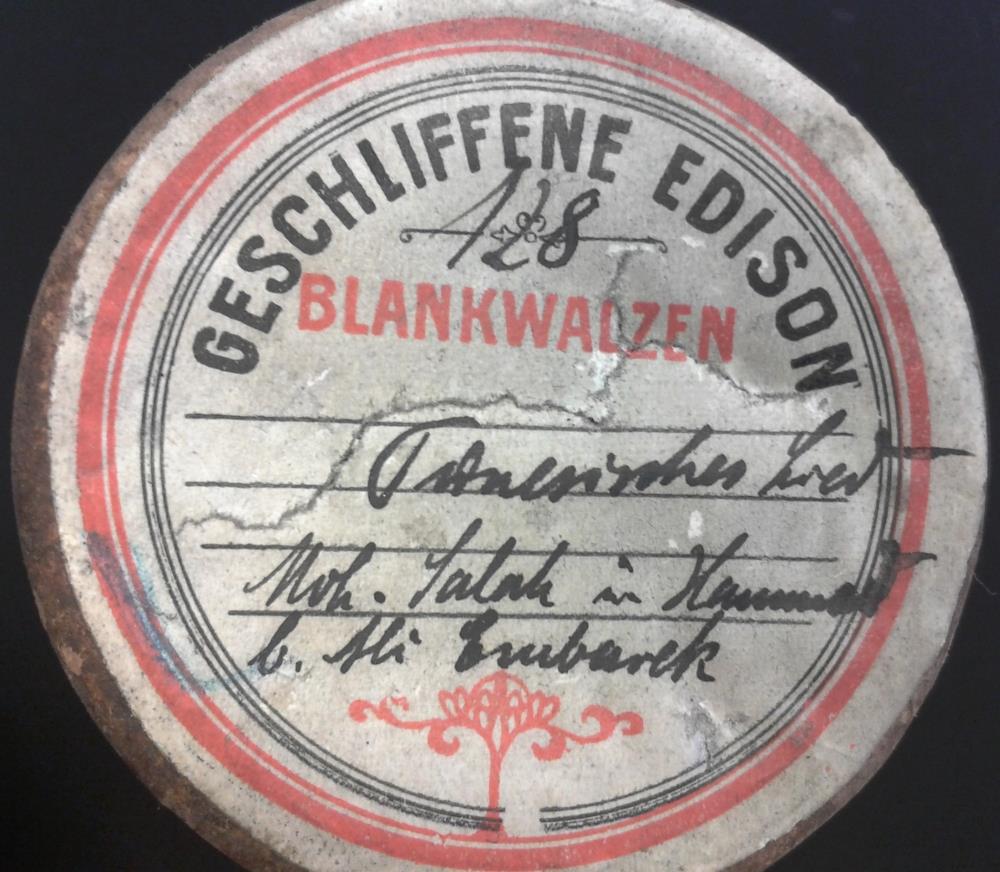 GESCHLIFFENE EDISON
128
BLANKWALZEN
Tunesisches Lied
Moh. Salah in Hammam
b. Ali Embarek